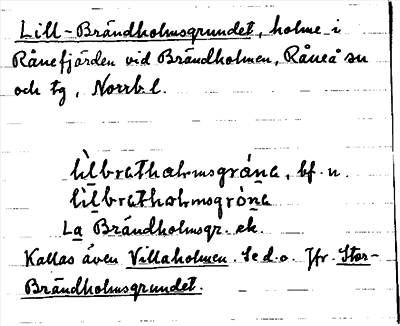 Lill-Brändholmsgrundet, holme i
Rånefjärden vid Brändholmen, Råneå sn
och tg, Norrb. l.
lìlbrathaḷmsgrána, bf. n.
lìlbrathaḷmsgròna
La Brändholmsgr. ek.
Kallas även Villaholmen. Se d.o. Jfr Stor-
Brändholmsgrundet.